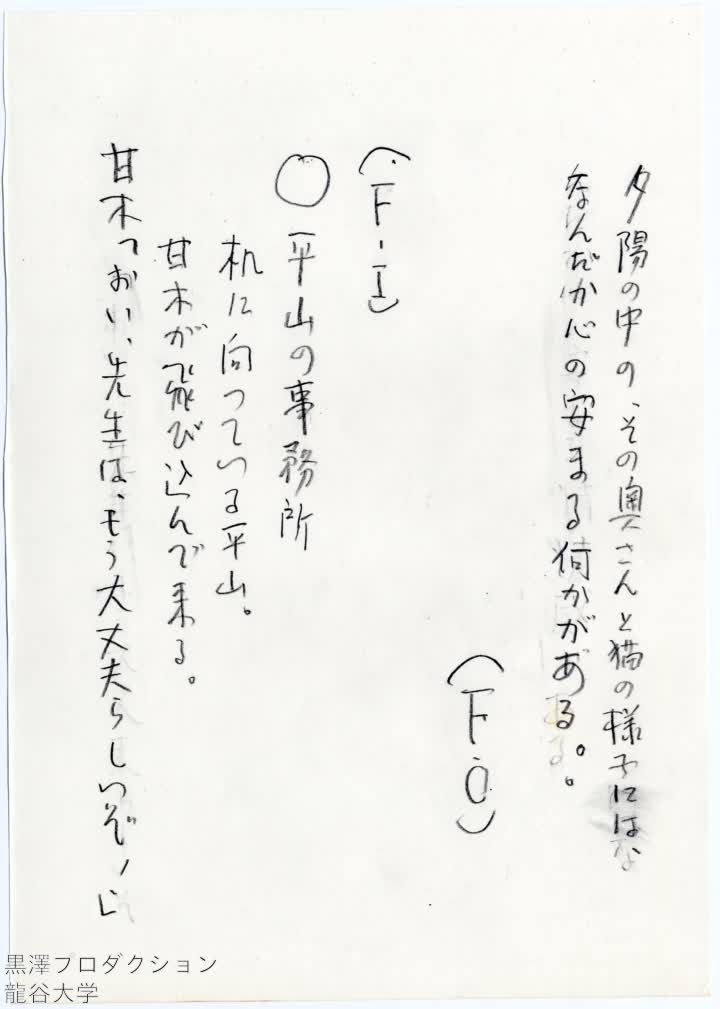 夕陽の中の、その奥さんと猫の様子には、
なんだか心の安まる何かがある。
(F・O)
(F・I)
○平山の事務所
机に向っている平山。
甘木が飛び込んで来る。
甘木「おい、先生は、もう大丈夫らしいぞ！」
黒澤プロダクション
龍谷大学